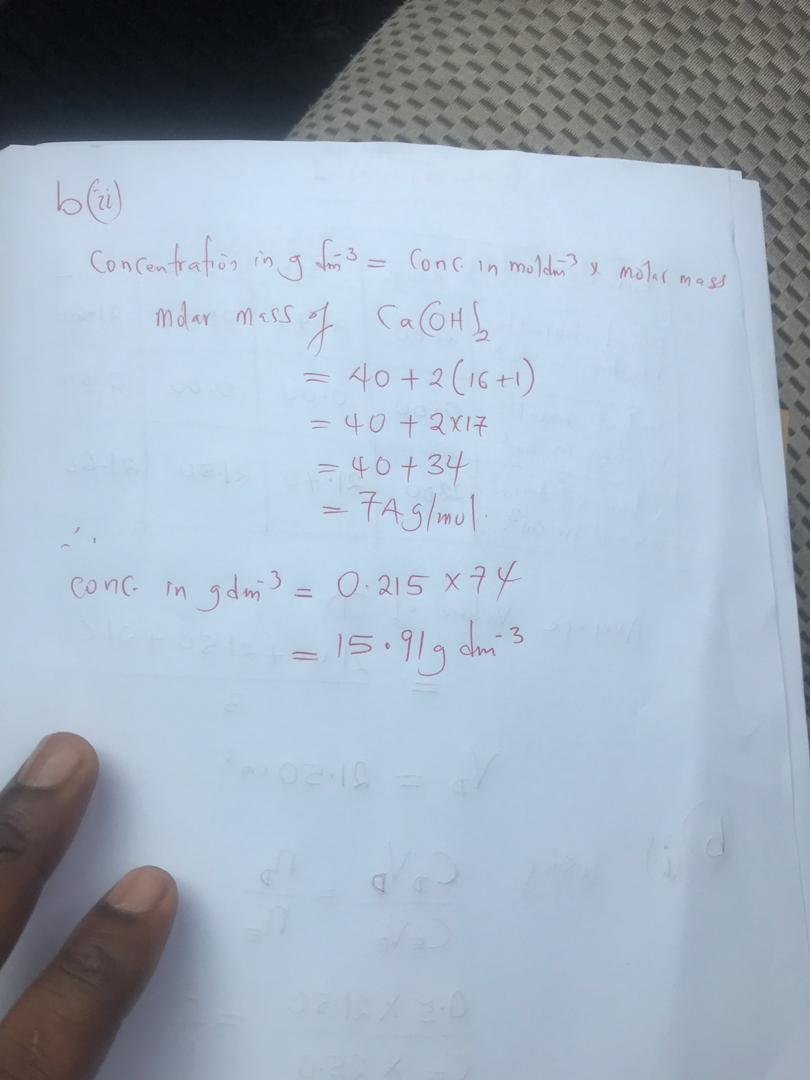 b(ii)
Concentration in g dm⁻³ = Conc. in moldm⁻³ x molar mass
molar mass of Ca(OH)₂
= 40 + 2(16+1)
= 40 + 2x17
= 40 + 34
= 74g/mol.
∴
conc. in gdm⁻³ = 0.215 x 74
= 15.91g dm⁻³